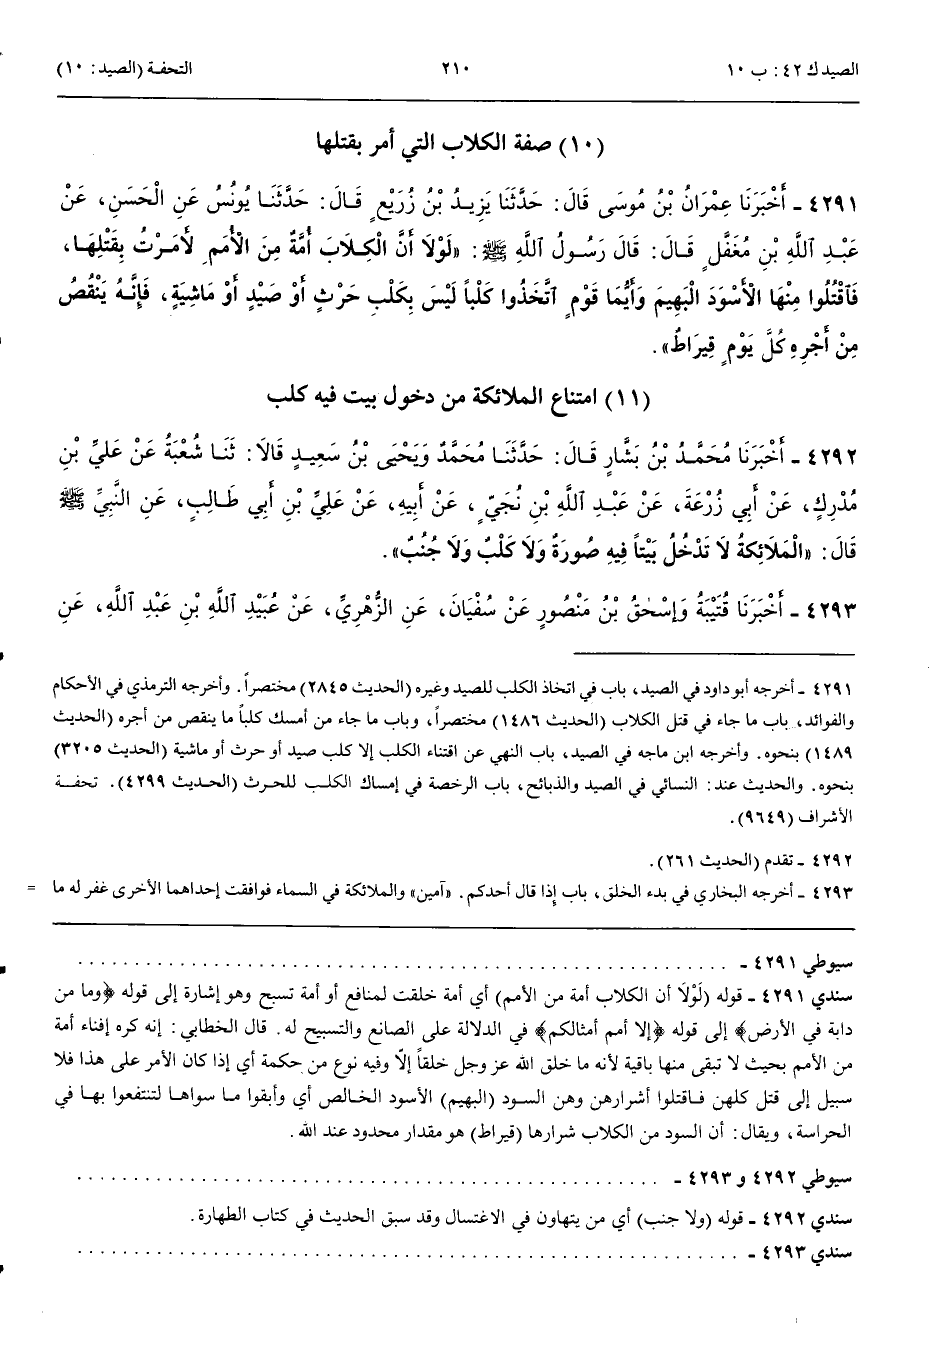 الصيد ك ٤٢: ب ١٠
٢١٠
التحفة (الصيد: ١٠)
(١٠) صفة الكلاب التي أمر بقتلها
٤٢٩١ ـ أَخْبَرَنَا عِمْرَانُ بْنُ مُوسَى قَالَ: حَدَّثَنَا يَزِيدُ بْنُ زُرَيْعٍ قَالَ: حَدَّثَنَا يُونُسُ عَنِ الْحَسَنِ، عَنْ
عَبْدِ ٱللَّهِ بْنِ مُغَفَّلٍ قَالَ: قَالَ رَسُولُ ٱللَّهِ ﷺ: «لَوْلَا أَنَّ الْكِلَابَ أُمَّةٌ مِنَ الْأُمَمِ لَأَمَرْتُ بِقَتْلِهَا،
فَٱقْتُلُوا مِنْهَا الْأَسْوَدَ الْبَهِيمَ وَأَيُّمَا قَوْمٍ ٱتَّخَذُوا كَلْباً لَيْسَ بِكَلْبِ حَرْثٍ أَوْ صَيْدٍ أَوْ مَاشِيَةٍ، فَإِنَّهُ يَنْقُصُ
مِنْ أَجْرِهِ كُلَّ يَوْمٍ قِيرَاطٌ».
(١١) امتناع الملائكة من دخول بيت فيه كلب
٤٢٩٢ ـ أَخْبَرَنَا مُحَمَّدُ بْنُ بَشَّارٍ قَالَ: حَدَّثَنَا مُحَمَّدٌ وَيَحْيَى بْنُ سَعِيدٍ قَالَا: ثَنَا شُعْبَةُ عَنْ عَلِيِّ بْنِ
مُدْرِكٍ، عَنْ أَبِي زُرْعَةَ، عَنْ عَبْدِ ٱللَّهِ بْنِ نُجَيٍّ، عَنْ أَبِيهِ، عَنْ عَلِيِّ بْنِ أَبِي طَالِبٍ، عَنِ النَّبِيِّ ﷺ
قَالَ: «الْمَلَائِكَةُ لَا تَدْخُلُ بَيْتاً فِيهِ صُورَةٌ وَلَا كَلْبٌ وَلَا جُنُبٌ».
٤٢٩٣ ـ أَخْبَرَنَا قُتَيْبَةُ وَإِسْحٰقُ بْنُ مَنْصُورٍ عَنْ سُفْيَانَ، عَنِ الزُّهْرِيِّ، عَنْ عُبَيْدِ ٱللَّهِ بْنِ عَبْدِ ٱللَّهِ، عَنِ
٤٢٩١ ـ أخرجه أبو داود في الصيد، باب في اتخاذ الكلب للصيد وغيره (الحديث ٢٨٤٥) مختصراً. وأخرجه الترمذي في الأحكام
والفوائد، باب ما جاء في قتل الكلاب (الحديث ١٤٨٦) مختصراً، وباب ما جاء من أمسك كلباً ما ينقص من أجره (الحديث
١٤٨٩) بنحوه. وأخرجه ابن ماجه في الصيد، باب النهي عن اقتناء الكلب إلا كلب صيد أو حرث أو ماشية (الحديث ٣٢٠٥)
بنحوه. والحديث عند: النسائي في الصيد والذبائح، باب الرخصة في إمساك الكلب للحرث (الحديث ٤٢٩٩). تحفة
الأشراف (٩٦٤٩).
٤٢٩٢ ـ تقدم (الحديث ٢٦١).
٤٢٩٣ ـ أخرجه البخاري في بدء الخلق، باب إذا قال أحدكم. «آمين» والملائكة في السماء فوافقت إحداهما الأخرى غفر له ما =
سيوطي ٤٢٩١ ـ . . . . . . . . . . . . . . . . . . . . . . . . . . . . . .
سندي ٤٢٩١ ـ قوله (لَوْلَا أن الكلاب أمة من الأمم) أي أمة خلقت لمنافع أو أمة تسبح وهو إشارة إلى قوله ﴿وما من
دابة في الأرض﴾ إلى قوله ﴿إلا أمم أمثالكم﴾ في الدلالة على الصانع والتسبيح له. قال الخطابي: إنه كره إفناء أمة
من الأمم بحيث لا تبقى منها باقية لأنه ما خلق الله عز وجل خلقاً إلّا وفيه نوع من حكمة أي إذا كان الأمر على هذا فلا
سبيل إلى قتل كلهن فاقتلوا أشرارهن وهن السود (البهيم) الأسود الخالص أي وأبقوا ما سواها لتنتفعوا بها في
الحراسة، ويقال: أن السود من الكلاب شرارها (قيراط) هو مقدار محدود عند الله.
سيوطي ٤٢٩٢ و ٤٢٩٣ ـ . . . . . . . . . . . . . . . . . . . . . . . . . . . . . .
سندي ٤٢٩٢ ـ قوله (ولا جنب) أي من يتهاون في الاغتسال وقد سبق الحديث في كتاب الطهارة.
سندي ٤٢٩٣ ـ . . . . . . . . . . . . . . . . . . . . . . . . . . . . . .